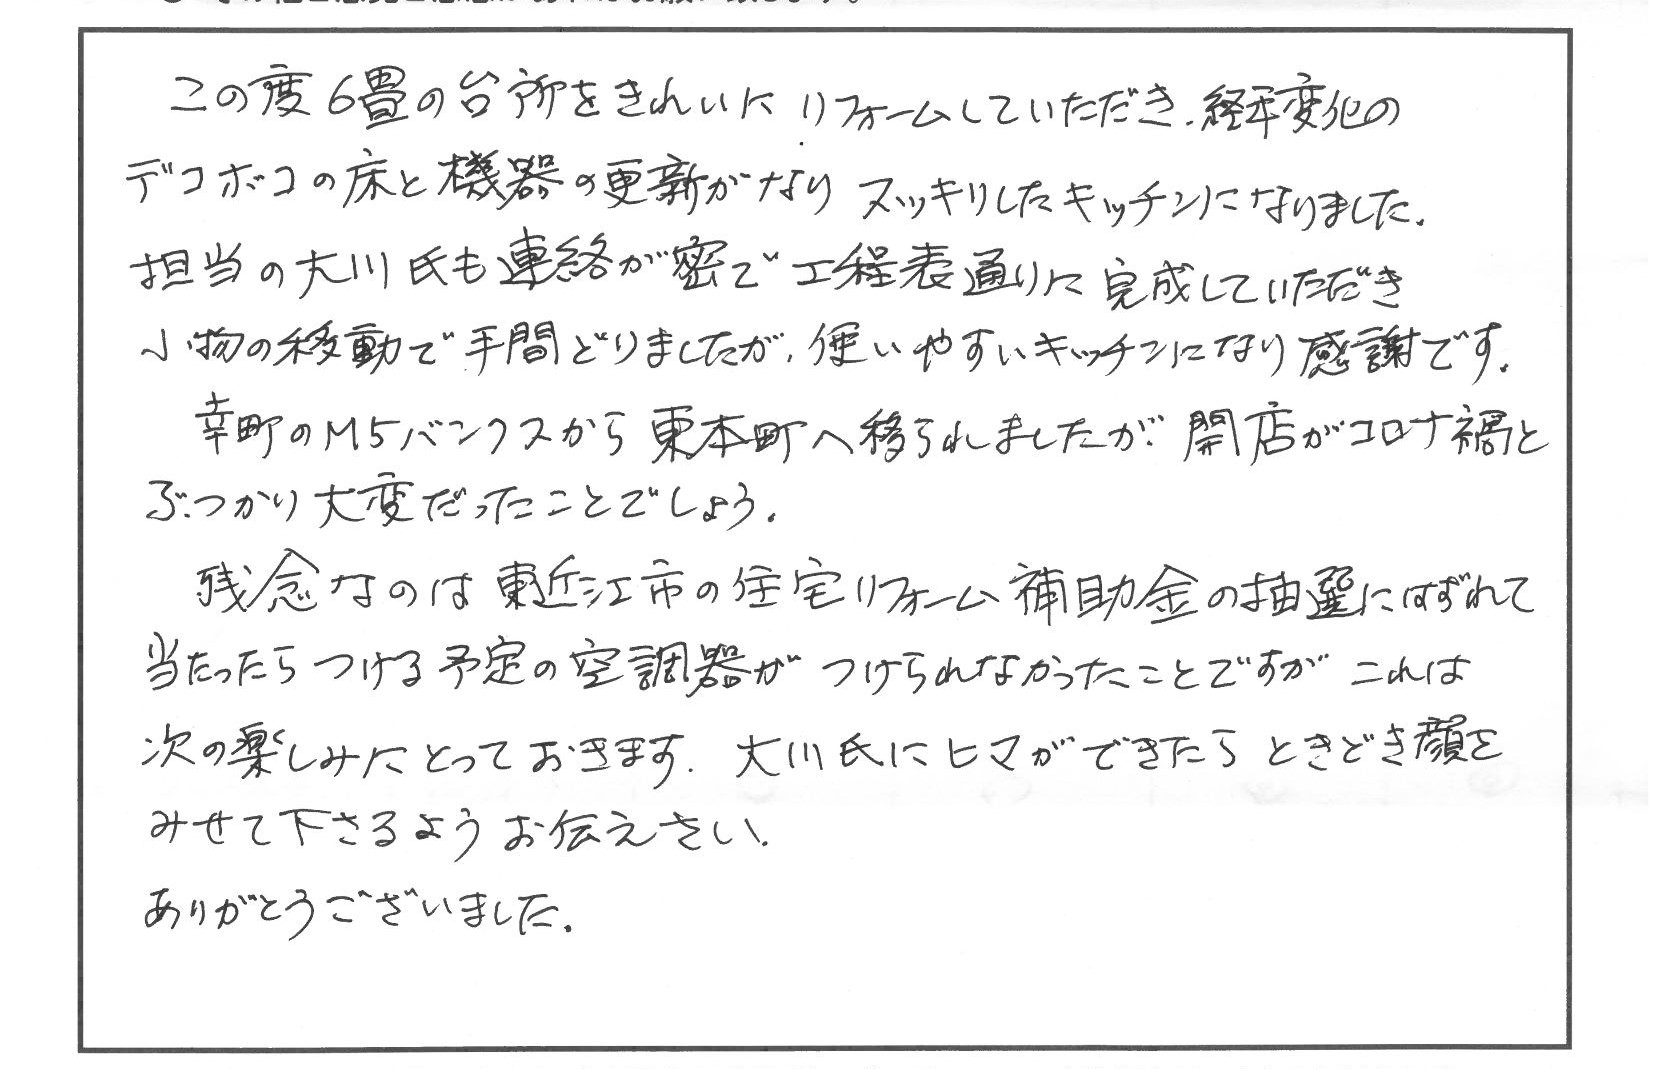 この度6畳の台所をきれいにリフォームしていただき、経年変化の
デコボコの床と機器の更新がなりスッキリしたキッチンになりました。
担当の大川氏も連絡が密で工程表通りに完成していただき
小物の移動で手間どりましたが、使いやすいキッチンになり感謝です。
幸町のM5バンクスから東本町へ移られましたが、開店がコロナ禍と
ぶつかり大変だったことでしょう。
残念なのは東近江市の住宅リフォーム補助金の抽選にはずれて
当たったらつける予定の空調器がつけられなかったことですがこれは
次の楽しみにとっておきます。大川氏にヒマができたらときどき顔を
みせて下さるようお伝えさい。
ありがとうございました。